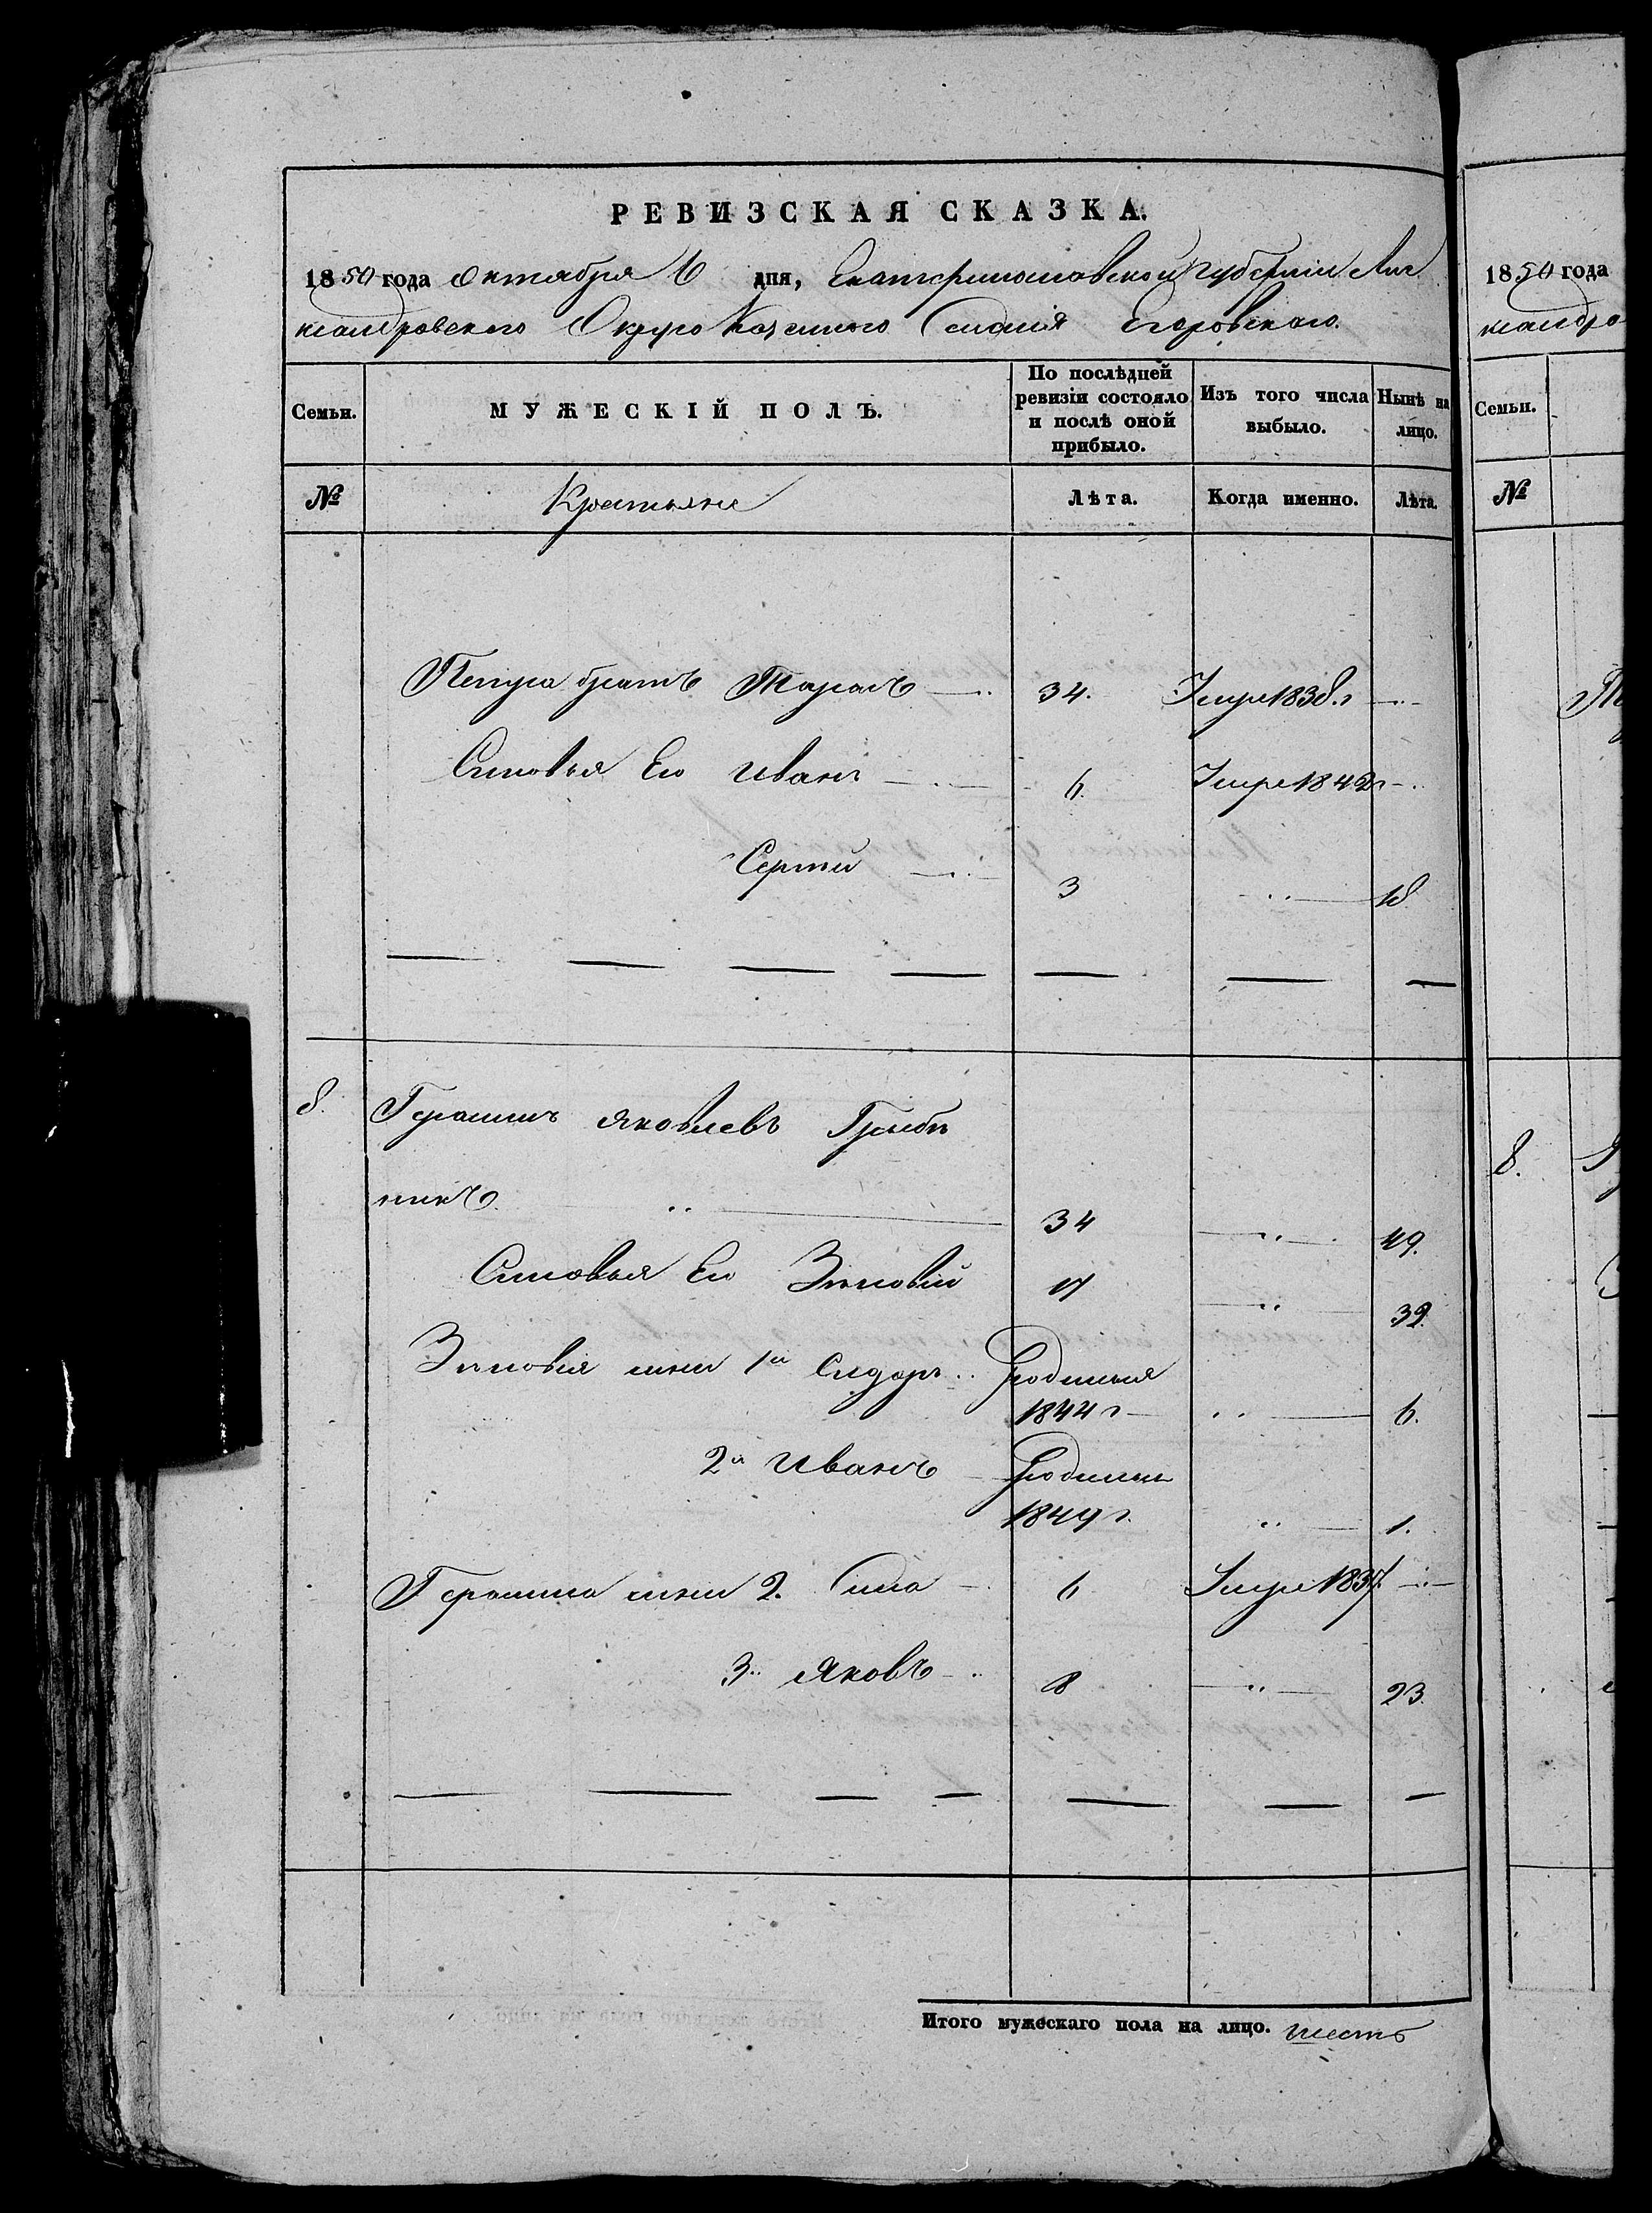 РЕВИЗСКАЯ СКАЗКА.
1850 года Октября 6 дня, Екатеринославской Губерніи Алек
сандровского Округа Казенного Селенія Егоровского.
Семьи. МУЖЕСКІЙ ПОЛЪ. По послѣдней ревизіи состояло и послѣ оной прибыло. Изъ того числа выбыло. Нынѣ на лицо.
№ Крестьяне Лѣта. Когда именно. Лѣта.
Петра братъ Тарасъ 34. Умре 1838 г
Сыновья Его Иванъ 6. Умре 1842 г
Сергей 3 18
8. Герасимъ Яковлевъ
никъ 34 49.
Сыновья Его Зиновій 17 32.
Зиновія сыны 1й Сидоръ Рожденія
1844 г 6.
2й Иванъ Рожденія
1849 г. 1.
Герасима сыны 2. Сила 6 Умре 1837.
3 Яковъ 8 23.
Итого мужескаго пола на лицо. шесть
1850 года
ксандро
Семьи.
№
8.